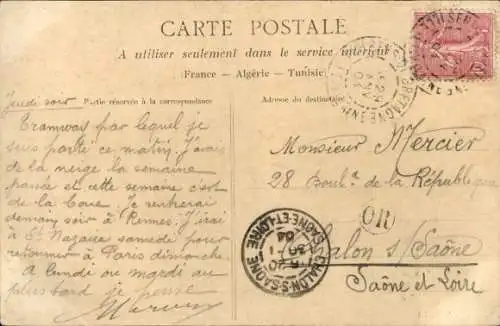 CARTE POSTALE
A utiliser seulement dans le service intérieur
France - Algérie - Tunisie
Partie réservée à la correspondance
Adresse du destinataire
Jeudi soir
Tramways par lequel je
suis parti ce matin. J'avais
de la neige la semaine
passée et cette semaine c'est
de la boue. Je rentrerai
demain soir à Rennes. J'irai
à St Nazaire samedi pour
retourner à Paris dimanche.
A lundi ou mardi au
plus tard je pense
Monsieur Mercier
28 Boulᵈ. de la République
Chalon s/ Saône
Saône et Loire
OR
CHALON-S-SAONE
SAONE-ET-LOIRE
04
10